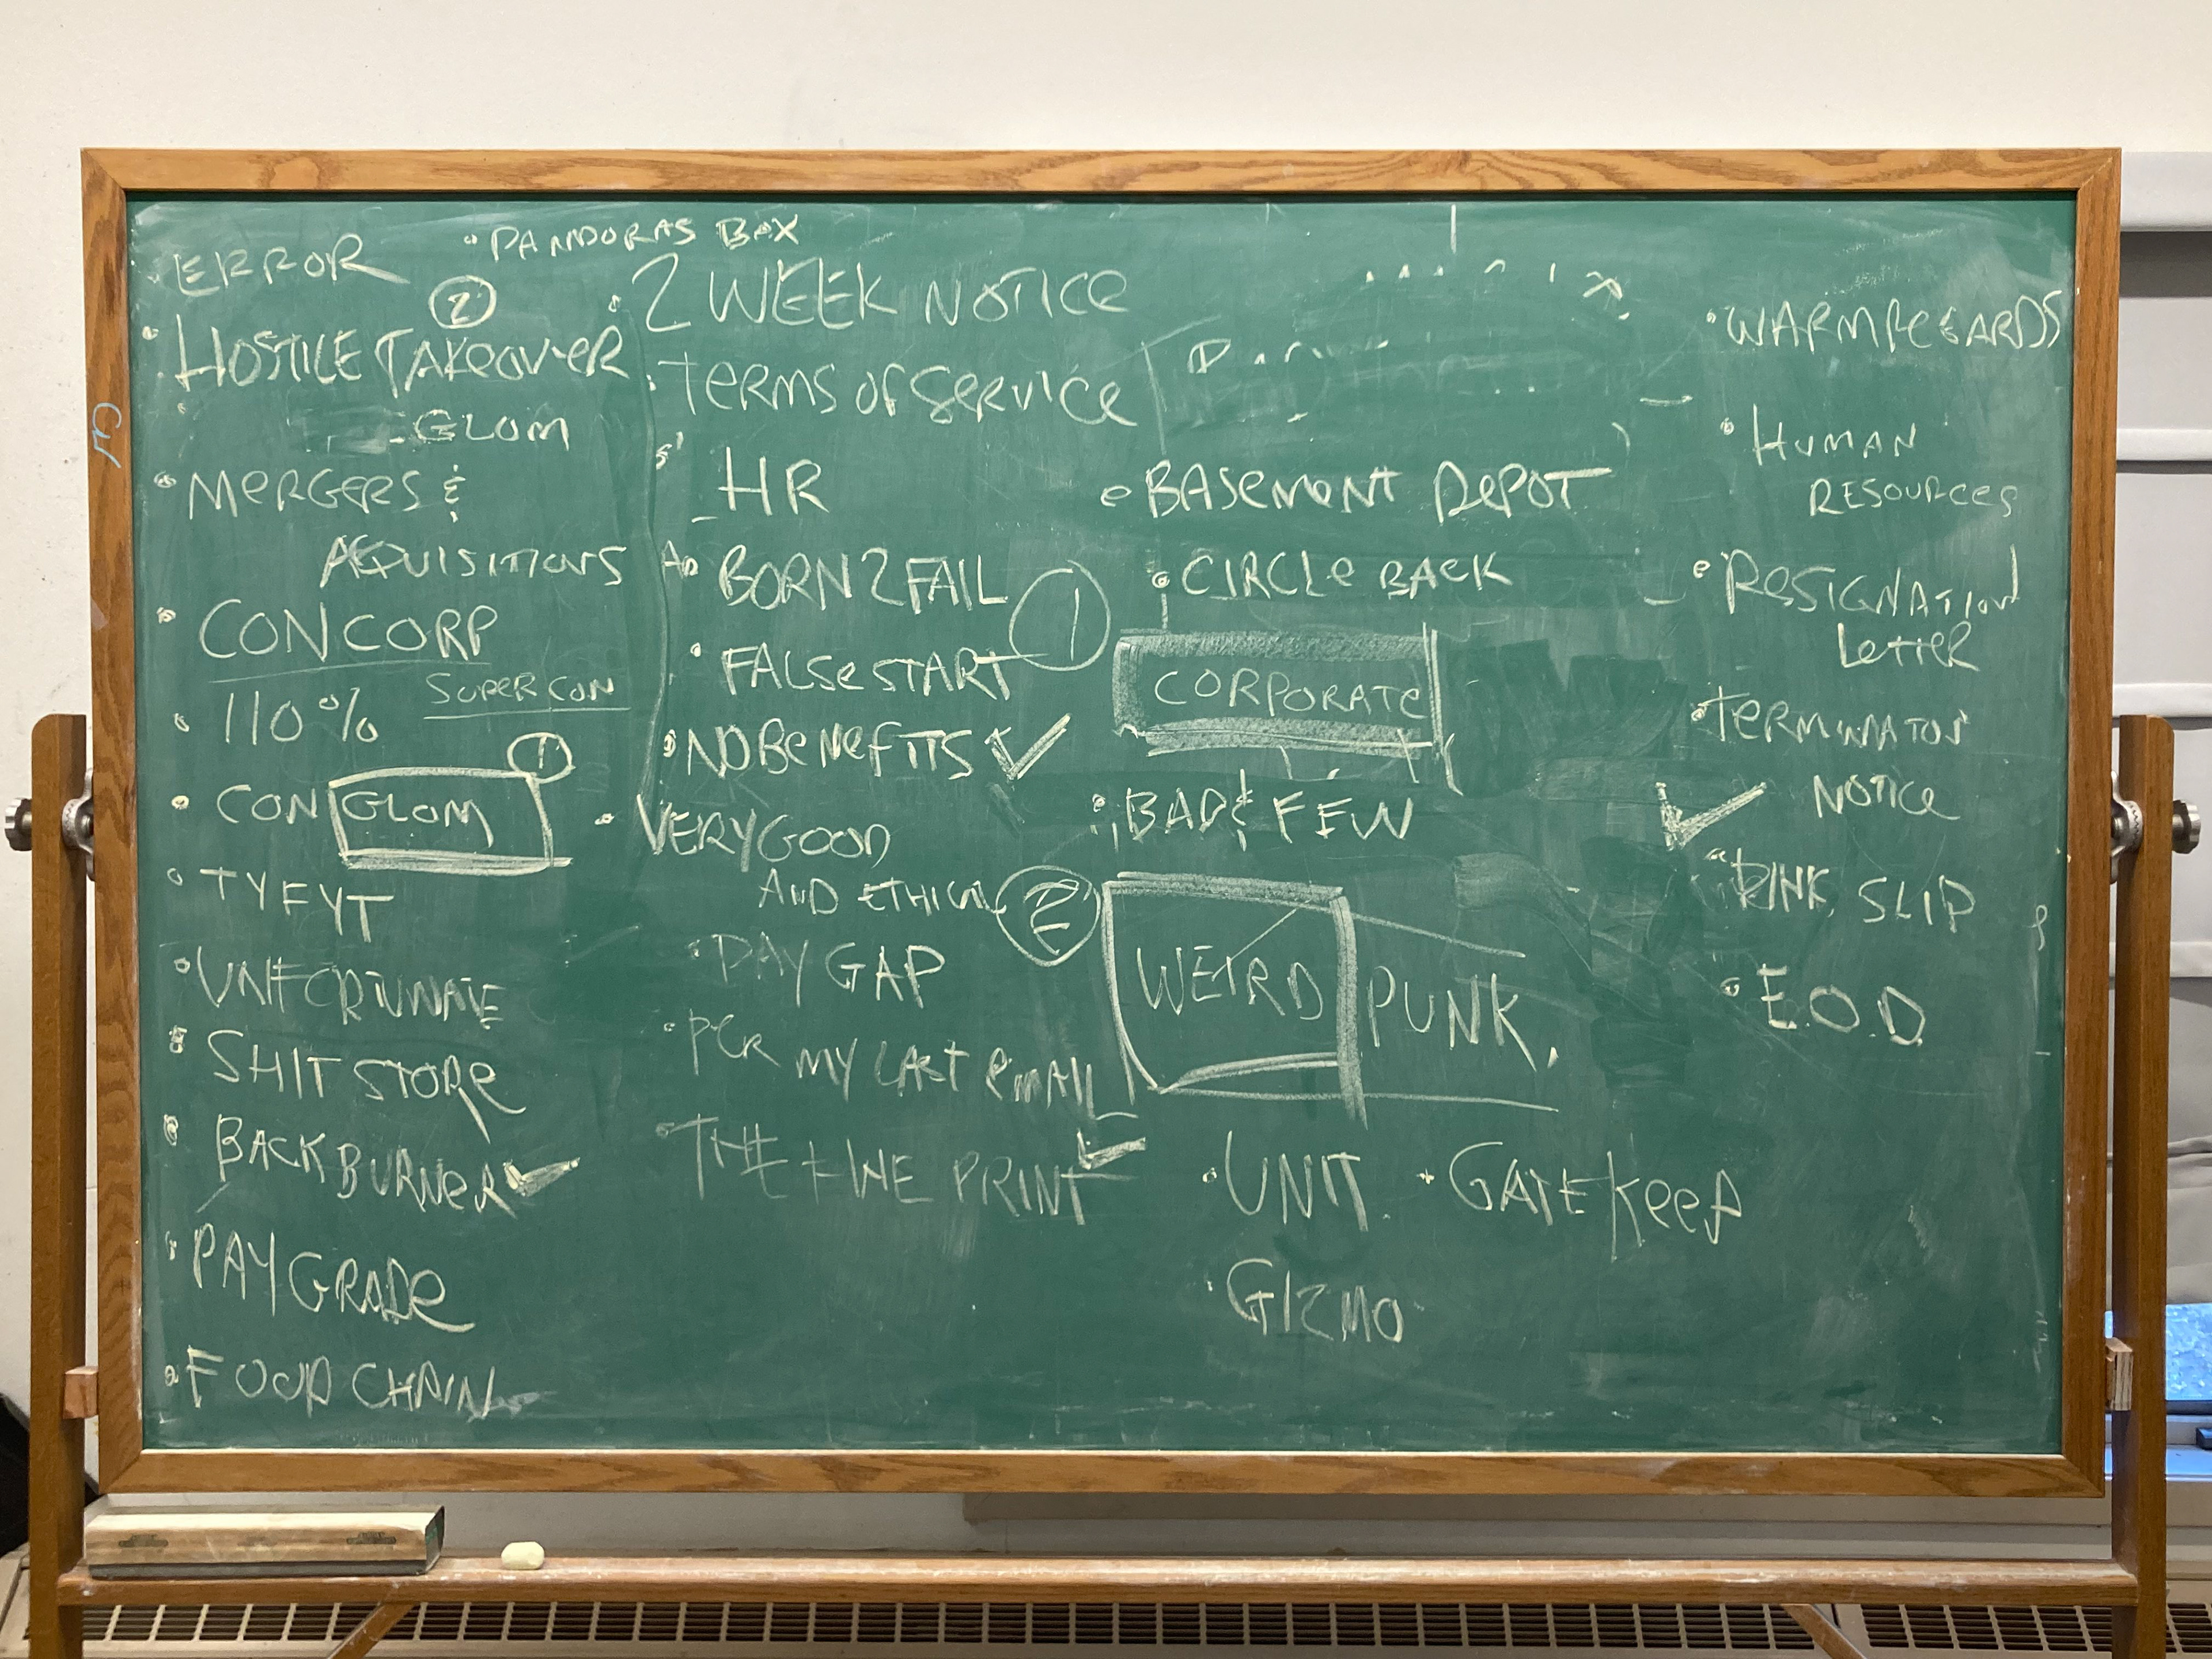 ERROR
• PANDORAS BOX
②
• HOSTILE TAKEOVER
GLOM
• MERGERS &
AQUISITIONS
• CONCORP
• 110%
SUPER CON
①
• CONGLOM
• TYFYT
• UNFORTUNATE
• SHIT STORE
• BACK BURNER ✓
• PAY GRADE
• FOOD CHAIN
• 2 WEEK NOTICE
• TERMS OF SERVICE
HR
BORN 2 FAIL
• FALSE START
①
• NO BENEFITS ✓
• VERY GOOD
AND ETHICAL
②
• PAY GAP
• PER MY LAST EMAIL
• THE FINE PRINT ✓
• BASEMENT DEPOT
• CIRCLE BACK
CORPORATE
• BAD & FEW
WEIRD PUNK.
• UNIT • GATE KEEP
• GIZMO
• WARM REGARDS
• HUMAN
RESOURCES
• RESIGNATION
LETTER
• TERMINATION
NOTICE
✓
• PINK SLIP
• E.O.D